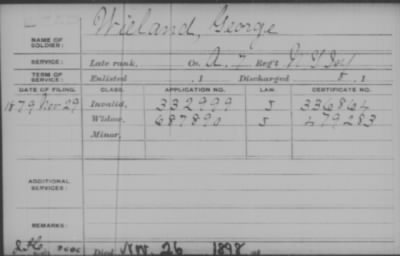 Wieland, George
NAME OF SOLDIER:
SERVICE: Late rank, Co. A. 7 Regt N Y Inf
TERM OF SERVICE: Enlisted , 1 Discharged , 1
DATE OF FILING. CLASS. APPLICATION NO. LAW. CERTIFICATE NO.
1879 Nov 29 Invalid, 332999 J 336864
Widow, 687890 J 479283
Minor,
ADDITIONAL SERVICES:
REMARKS:
Died Nov. 26 1898 at